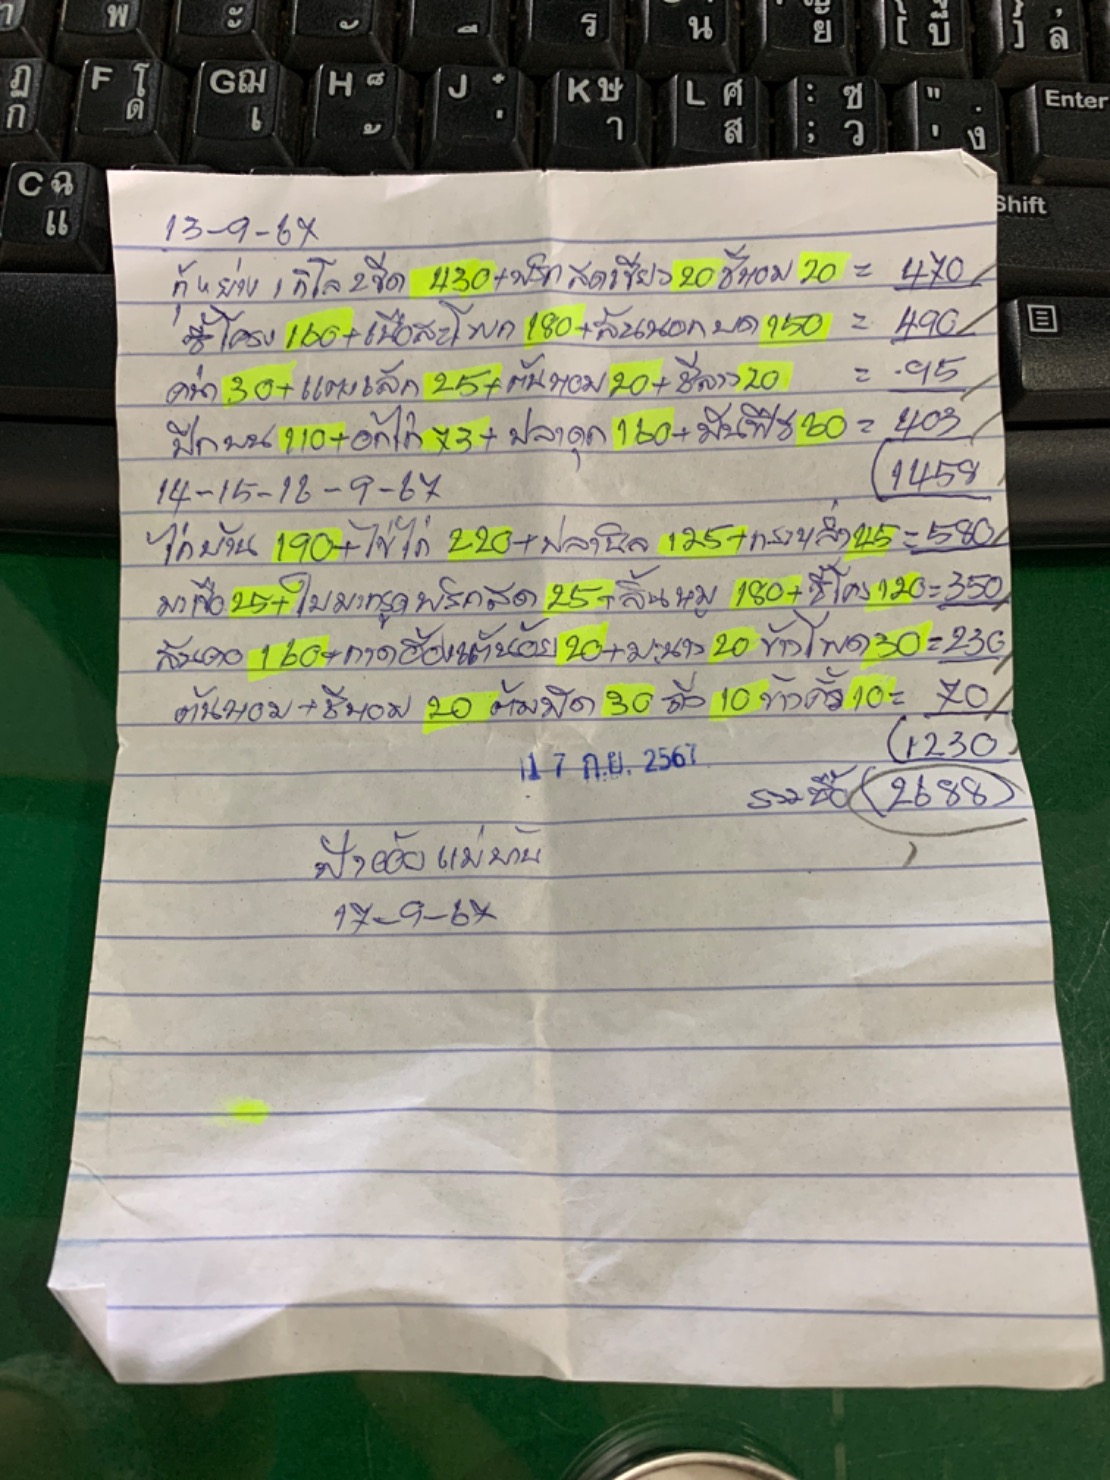 พ ะ ั ี ร น ย ู้ [ บ ึ ] ล
ฏ ก F โ ด G ฌ เ H ็ ้ J ๋ ่ K ษ า L ศ ส : ; ซ ว " ' . ง Enter
C ฉ แ Shift
13-9-67
กุ้ง 1 กิโล 2 ขีด 430 + พริกสดเขียว 20 ชีหอม 20 = 470
ซี่โครง 160 + เนื้อสะโพก 180 + สันนอกบด 150 = 490
คน้า 30 + แตงเล้ก 25 + ต้นหอม 20 + ชีลาว 20 = 95
ปีกบน 110 + อกไก่ 73 + ปลาดุก 160 + 60 = 403
(1458
14-15-16-9-67
ไก่บ้าน 190 + ไข่ไก่ 220 + ปลานิล 125 + 45 = 580
มะเขือ 25 + ใบมะกรูดพริกสด 25 + ลิ้นหมู 180 + ซี่โครง 120 = 350
สันคอ 160 + 20 + มะนาว 20 ข้าวโพด 30 = 230
ต้นหอม + ชีหอม 20 30 ถั่ว 10 ข้าวคั่ว 10 = 70
(1230
17 ก.ย. 2567
รวมซื้อ (2688)
แม่บ้าน
17-9-67